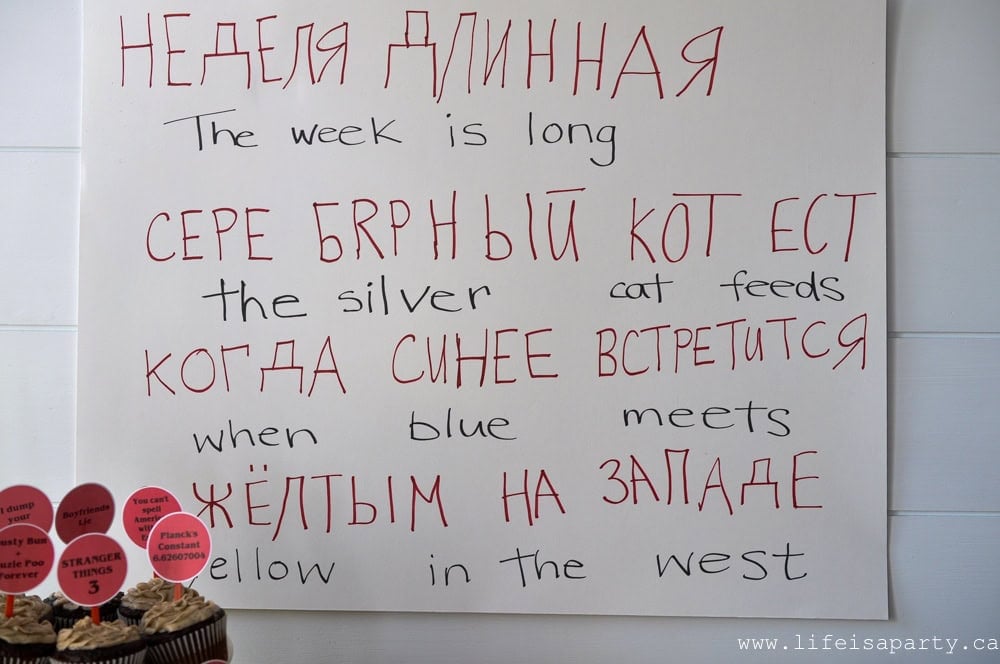 НЕДЕЛЯ ДЛИННАЯ
The week is long
СЕРЕ БRРНЫЙ КОТ ЕСТ
the silver cat feeds
КОГДА СИНЕЕ ВСТРЕТИТСЯ
when blue meets
ЖЁЛТЫМ НА ЗАПАДЕ
yellow in the west
I dump
your
Boyfriends
Lie
You can't
spell
usty Bun
+
uzie Poo
Forever
STRANGER
THINGS
3
Planck's
Constant
6.62607004
www.lifeisaparty.ca